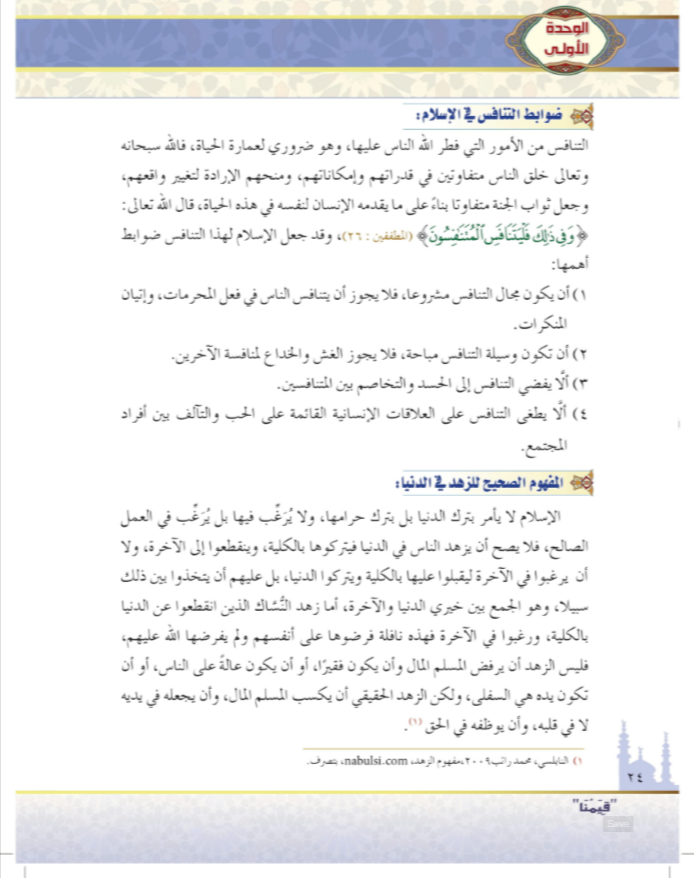 الوحدة
الأولى
ضوابط التنافس في الإسلام:
التنافس من الأمور التي فطر الله الناس عليها، وهو ضروري لعمارة الحياة، فالله سبحانه
وتعالى خلق الناس متفاوتين في قدراتهم وإمكاناتهم، ومنحهم الإرادة لتغيير واقعهم،
وجعل ثواب الجنة متفاوتا بناءً على ما يقدمه الإنسان لنفسه في هذه الحياة، قال الله تعالى:
﴿وَفِي ذَلِكَ فَلْيَتَنَافَسِ ٱلْمُتَنَافِسُونَ﴾ (المطففين : ٢٦)، وقد جعل الإسلام لهذا التنافس ضوابط
أهمها:
١) أن يكون مجال التنافس مشروعا، فلا يجوز أن يتنافس الناس في فعل المحرمات، وإتيان
المنكرات.
٢) أن تكون وسيلة التنافس مباحة، فلا يجوز الغش والخداع لمنافسة الآخرين.
٣) ألّا يفضي التنافس إلى الحسد والتخاصم بين المتنافسين.
٤) ألّا يطغى التنافس على العلاقات الإنسانية القائمة على الحب والتآلف بين أفراد
المجتمع.
المفهوم الصحيح للزهد في الدنيا:
الإسلام لا يأمر بترك الدنيا بل بترك حرامها، ولا يُرَغِّب فيها بل يُرَغِّب في العمل
الصالح، فلا يصح أن يزهد الناس في الدنيا فيتركوها بالكلية، وينقطعوا إلى الآخرة، ولا
أن يرغبوا في الآخرة ليقبلوا عليها بالكلية ويتركوا الدنيا، بل عليهم أن يتخذوا بين ذلك
سبيلا، وهو الجمع بين خيري الدنيا والآخرة، أما زهد النُّسّاك الذين انقطعوا عن الدنيا
بالكلية، ورغبوا في الآخرة فهذه نافلة فرضوها على أنفسهم ولم يفرضها الله عليهم،
فليس الزهد أن يرفض المسلم المال وأن يكون فقيرًا، أو أن يكون عالةً على الناس، أو أن
تكون يده هي السفلى، ولكن الزهد الحقيقي أن يكسب المسلم المال، وأن يجعله في يديه
لا في قلبه، وأن يوظفه في الحق (١).
١) النابلسي، محمد راتب٢٠٠٩،مفهوم الزهد، nabulsi.com، بتصرف.
٢٤
"قِيَمُنَا"